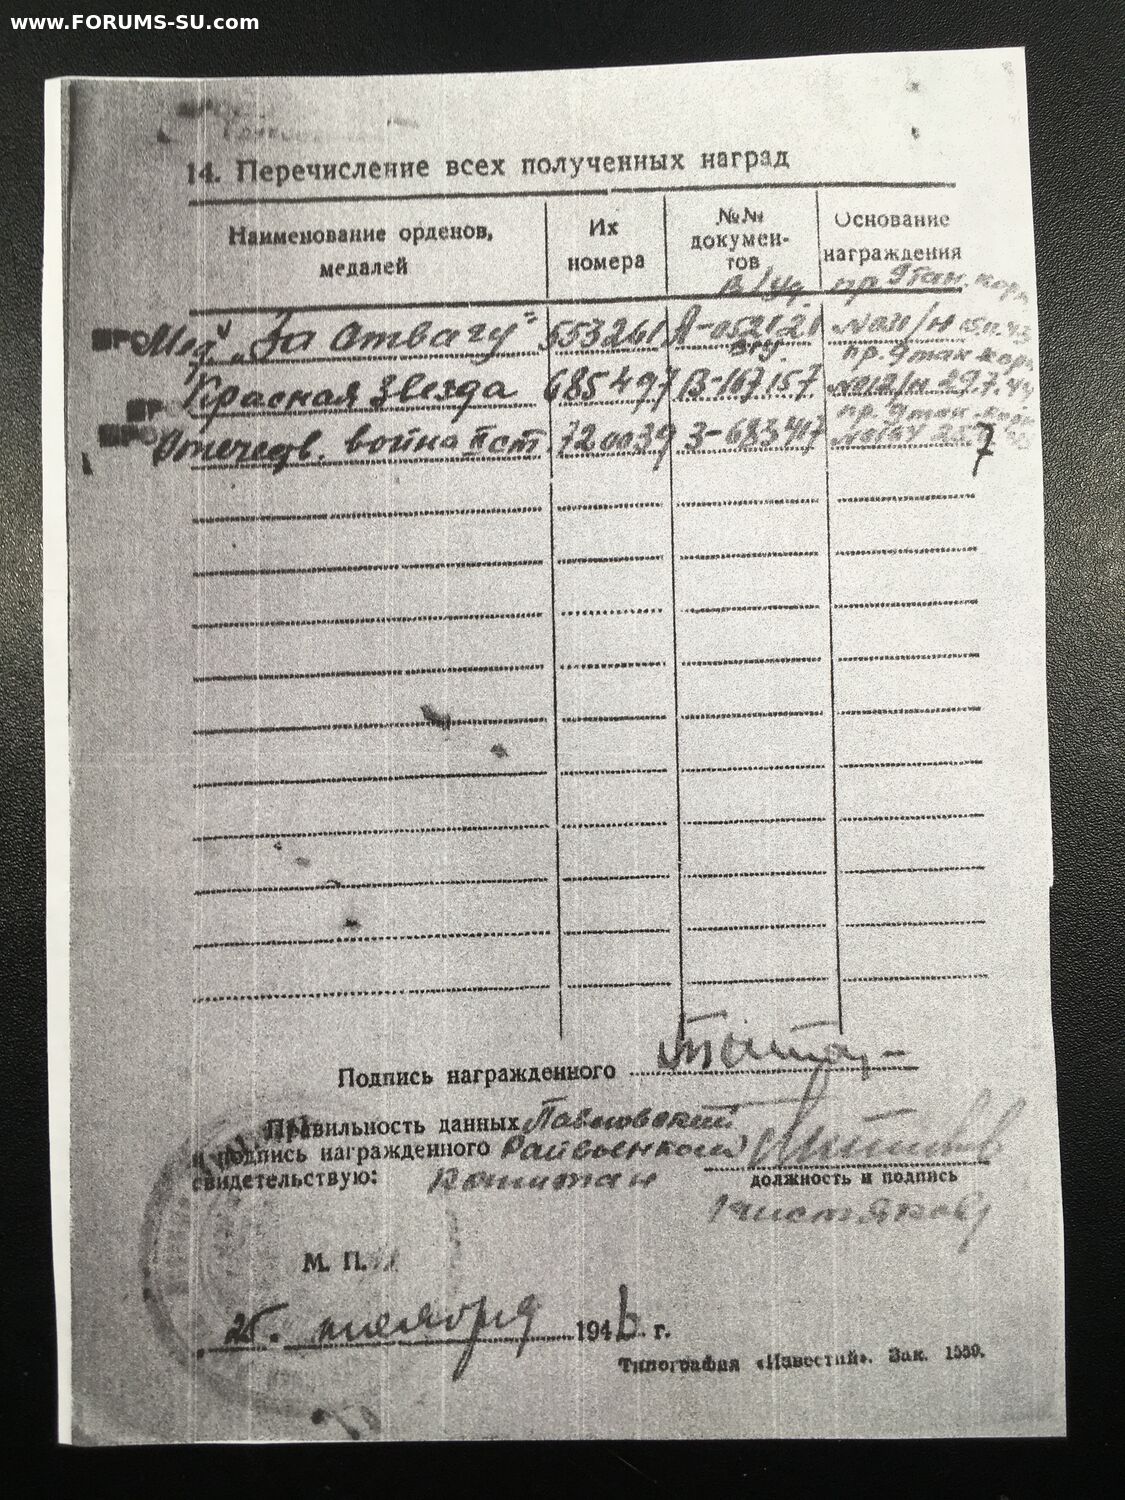 www.FORUMS-SU.com
14. Перечисление всех полученных наград
Наименование орденов, медалей
Их номера
№№ документов
Основание награждения
В/Уд пр. 9 тан. корп
Мед. „За Отвагу" 553261 А-052121 №011/н
ВГУ пр. 9 тан. корп
Красная Звезда 685497 В-167157 №012/н 29.7.44
пр. 9 тан. корп
Отечеств. война II ст. 720039 З-683417
7
Подпись награжденного
Правильность данных Павловский
и подпись награжденного Райвоенком
свидетельствую: Капитан
должность и подпись
Чистяков
М. П.
25. ноября 1946 г.
Типография «Известий». Зак. 1550.